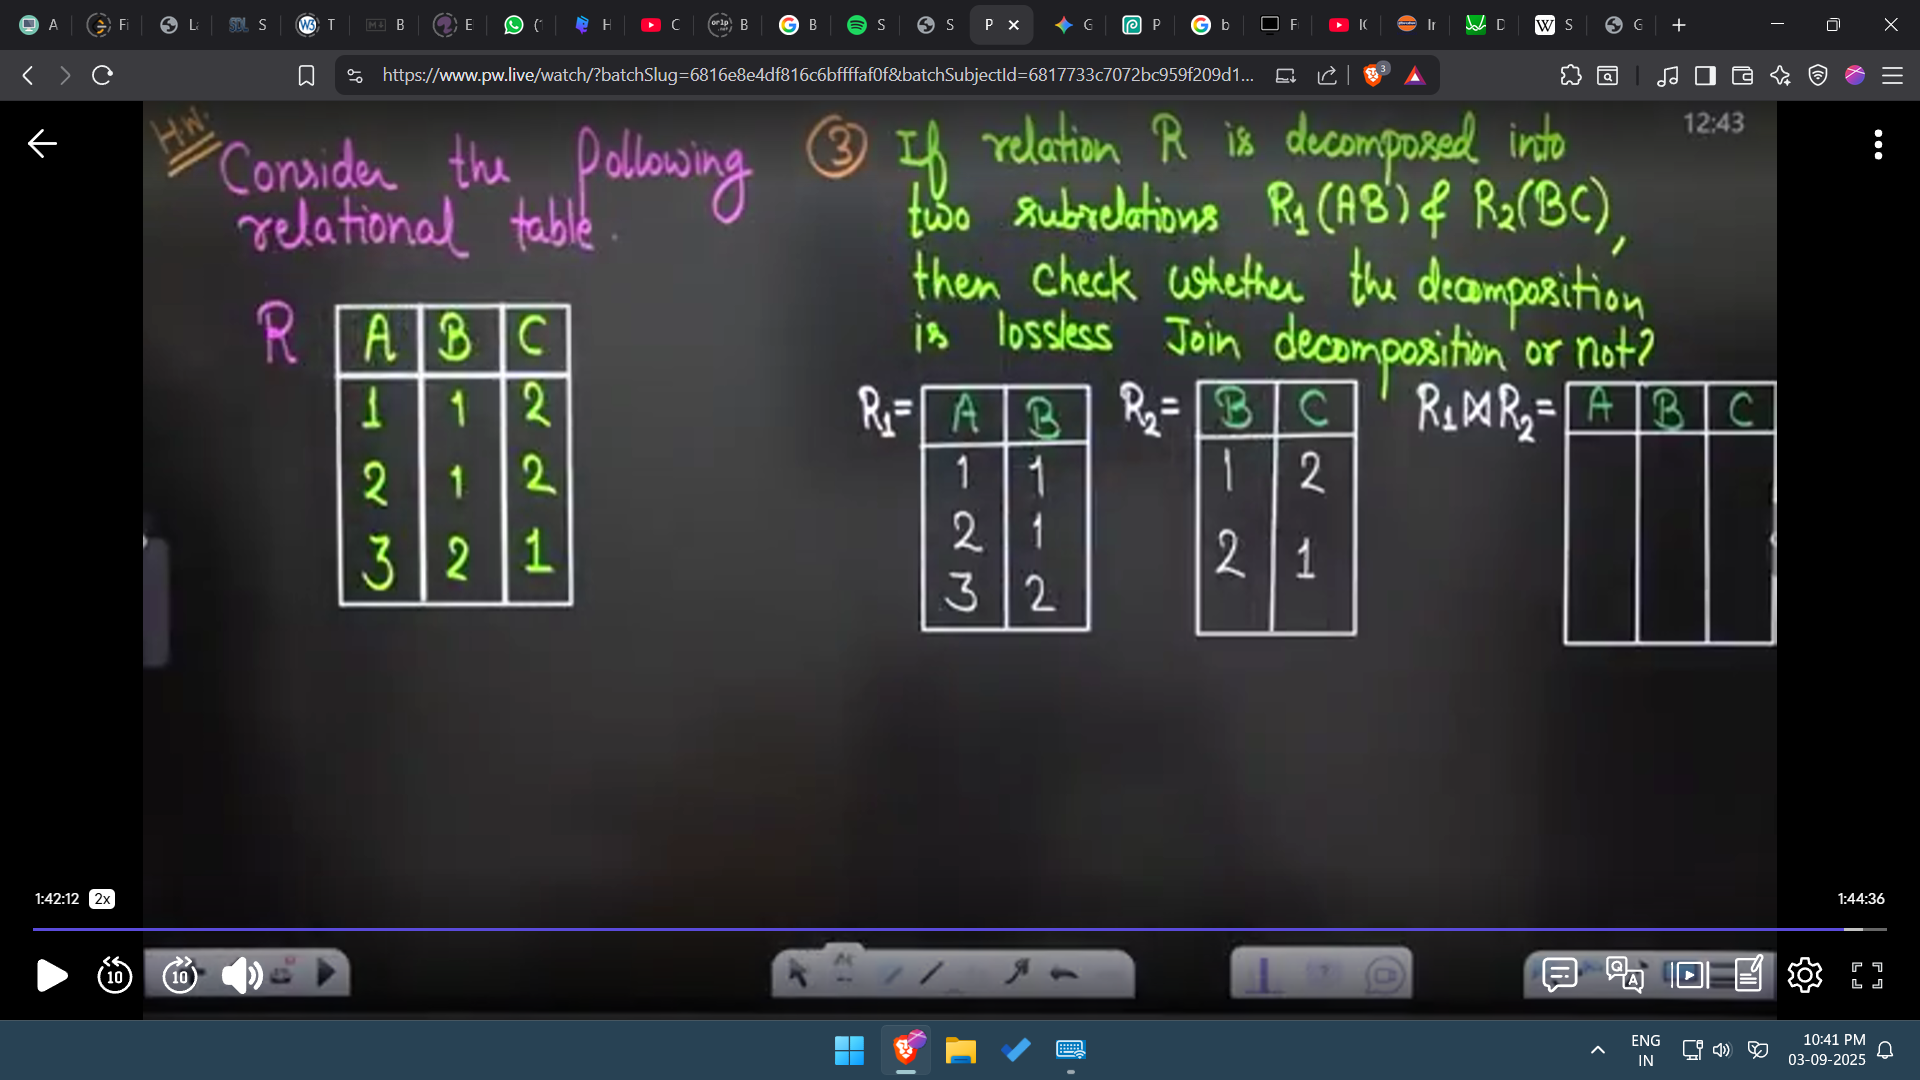 A
Fi
La
SQL S
W3 T
B
E
(1
H
C
orip .net B
G B
S
S
P
G
P
G b
F
IC
Ir
D
W S
G
https://www.pw.live/watch/?batchSlug=6816e8e4df816c6bffffaf0f&batchSubjectId=6817733c7072bc959f209d1...
3
H.W.
Consider the following
relational table.
R
A B C
1 1 2
2 1 2
3 2 1
12:43
③ If relation R is decomposed into
two subrelations R₁(AB) & R₂(BC),
then check whether the decomposition
is lossless Join decomposition or not?
R₁= A B
1 1
2 1
3 2
R₂= B C
1 2
2 1
R₁⋈R₂= A B C
1:42:12 2x
1:44:36
10
10
Q A
ENG
IN
10:41 PM
03-09-2025